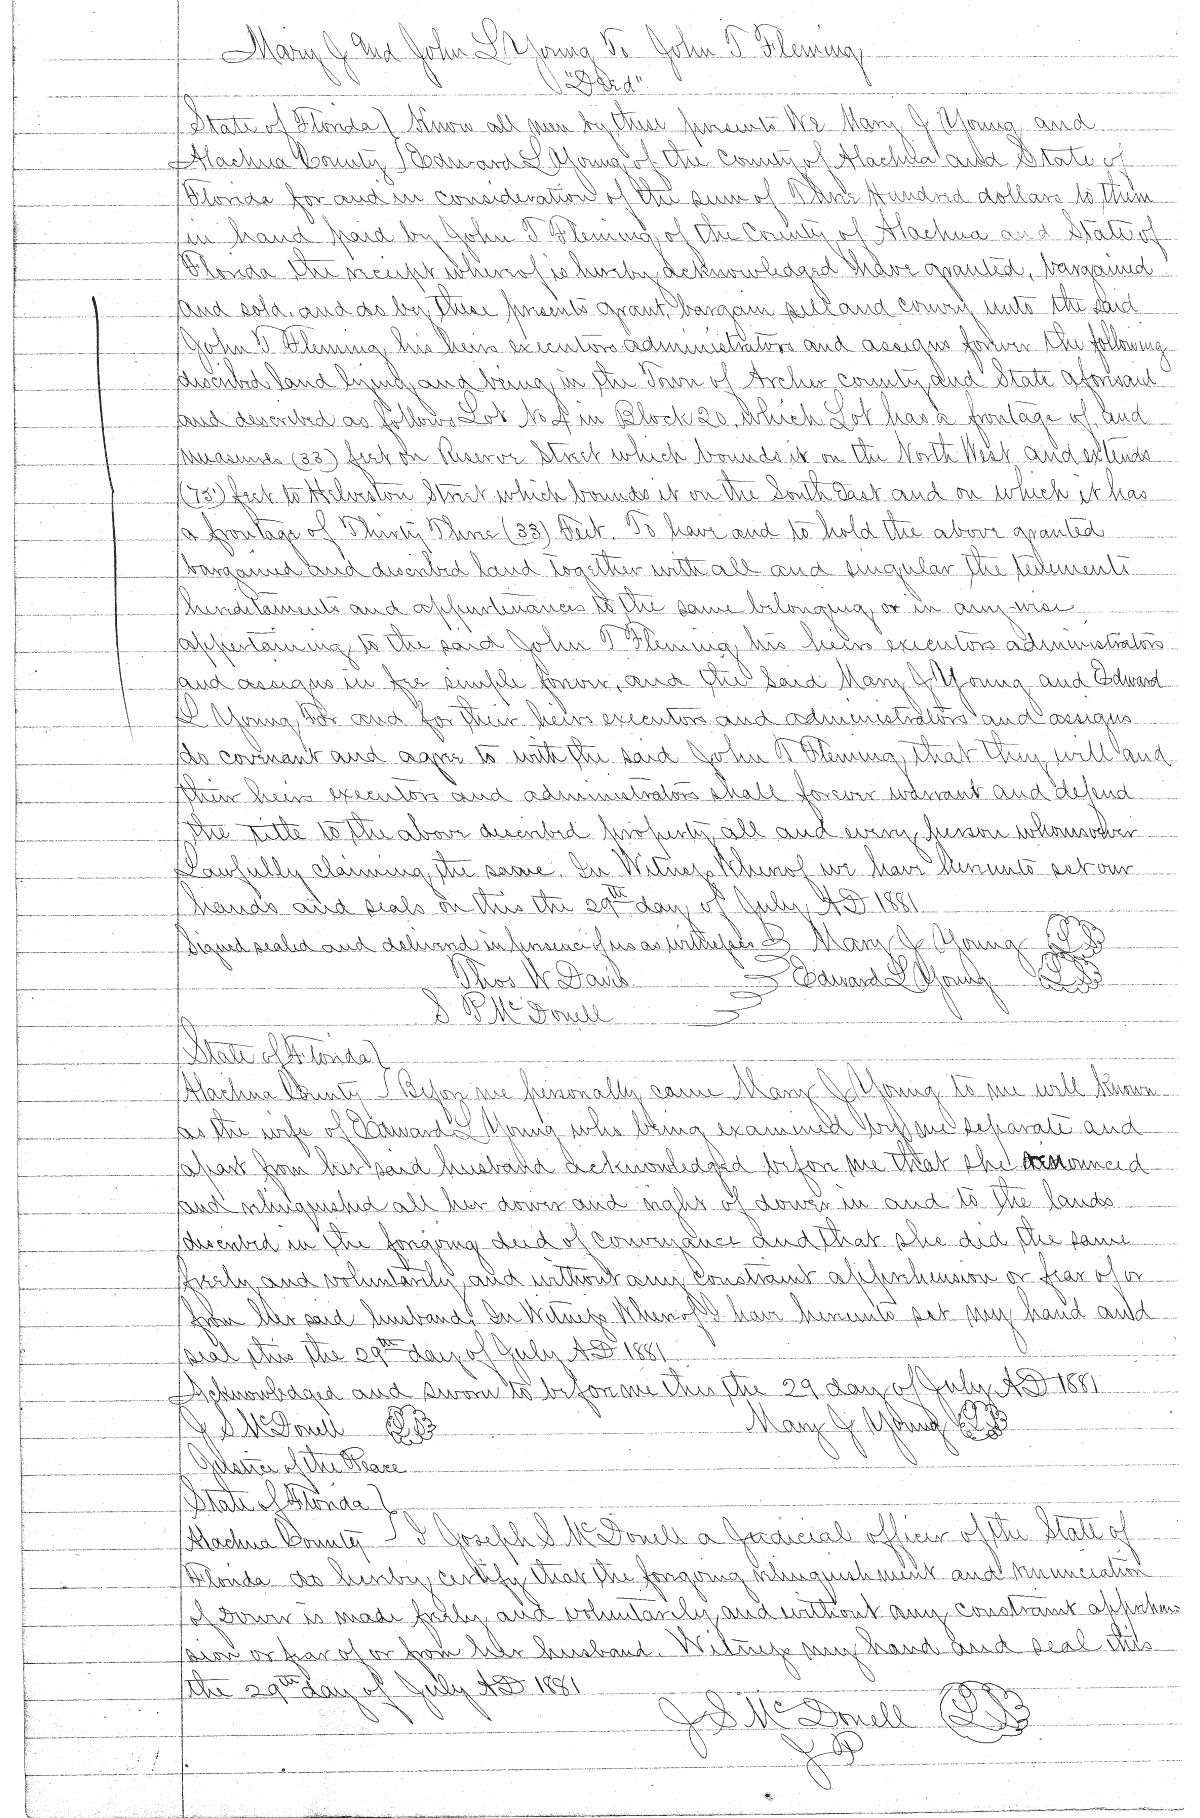 Mary J and John L Young To John T Fleming
"Deed"
State of Florida } Know all men by these presents We Mary J Young and
Alachua County } Edward L Young of the County of Alachua and State of
Florida for and in consideration of the sum of Three Hundred dollars to them
in hand paid by John T Fleming of the County of Alachua and State of
Florida the receipt whereof is hereby acknowledged have granted, bargained
and sold, and do by these presents grant, bargain sell and convey unto the said
John T Fleming his heirs executors administrators and assigns forever the following
described land lying and being in the Town of Archer county and State aforesaid
and described as follows Lot No 4 in Block 20, which Lot has a frontage of, and
measures (33) feet on Reserve Street which bounds it on the North West and extends
(75) feet to Helveston Street which bounds it on the South East and on which it has
a frontage of Thirty Three (33) Feet. To have and to hold the above granted
bargained and described land together with all and singular the tenements
hereditaments and appurtenances to the same belonging or in any-wise
appertaining to the said John T Fleming his heirs executors administrators
and assigns in fee simple forever, and the said Mary J Young and Edward
L Young For and for their heirs executors and administrators and assigns
do covenant and agree to with the said John T Fleming that they will and
their heirs executors and administrators shall forever warrant and defend
the title to the above described property all and every person whomsoever
Lawfully claiming the same. In Witness Whereof we have hereunto set our
hands and seals on this the 29th day of July AD 1881
Signed sealed and delivered in presence of us as witnesses } Mary J Young LS
Thos W Davis } Edward L Young LS
S P McDonell }
State of Florida }
Alachua County } Before me personally came Mary J Young to me well known
as the wife of Edward L Young who being examined by me separate and
apart from her said husband acknowledged before me that she renounced
and relinquished all her dower and right of dower in and to the lands
described in the forgoing deed of conveyance and that she did the same
freely and voluntarily and without any constraint apprehension or fear of or
from her said husband. In Witness Whereof I have hereunto set my hand and
seal this the 29th day of July AD 1881
Acknowledged and sworn to before me this the 29 day of July AD 1881
J S McDonell LS Mary J Young LS
Justice of the Peace
State of Florida }
Alachua County } I Joseph S McDonell a Judicial officer of the State of
Florida do hereby certify that the forgoing relinquishment and renunciation
of Dower is made freely and voluntarily and without any constraint apprehen
sion or fear of or from her husband. Witness my hand and seal this
the 29th day of July AD 1881
J S McDonell LS
J P